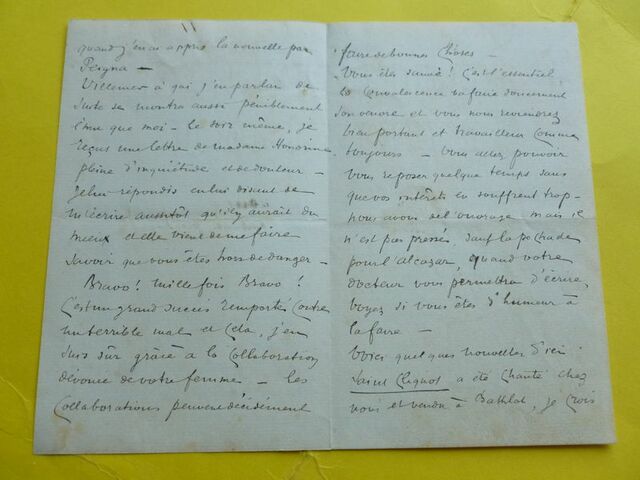 quand j'en ai appris la nouvelle par
Peigna —
Villemer à qui j'en parlai de
suite se montra aussi péniblement
ému que moi — le soir même, je
reçus une lettre de madame Honorine
pleine d'inquiétude et de douleur —
Je lui répondis en lui disant de
m'écrire aussitôt qu'il y aurait du
mieux et elle vient de me faire
savoir que vous êtes hors de danger —
Bravo ! mille fois Bravo !
C'est un grand succès remporté contre
un terrible mal et cela, j'en
suis sûr grâce à la collaboration
dévouée de votre femme — les
collaborations peuvent décidément
faire de bonnes choses —
Vous êtes sauvé ! c'est l'essentiel,
la convalescence va faire doucement
son œuvre et vous nous reviendrez
bien portant et travailleur comme
toujours — vous allez pouvoir
vous reposer quelque temps sans
que vos intérêts en souffrent trop —
nous avons de l'ouvrage mais il
n'est pas pressé, sauf la pochade
pour l'alcazar, quand votre
docteur vous permettra d'écrire,
voyez si vous êtes d'humeur à
la faire —
Voici quelques nouvelles d'ici
Saint Cliquot a été chanté chez
nous et vendu à Bathlot, je crois